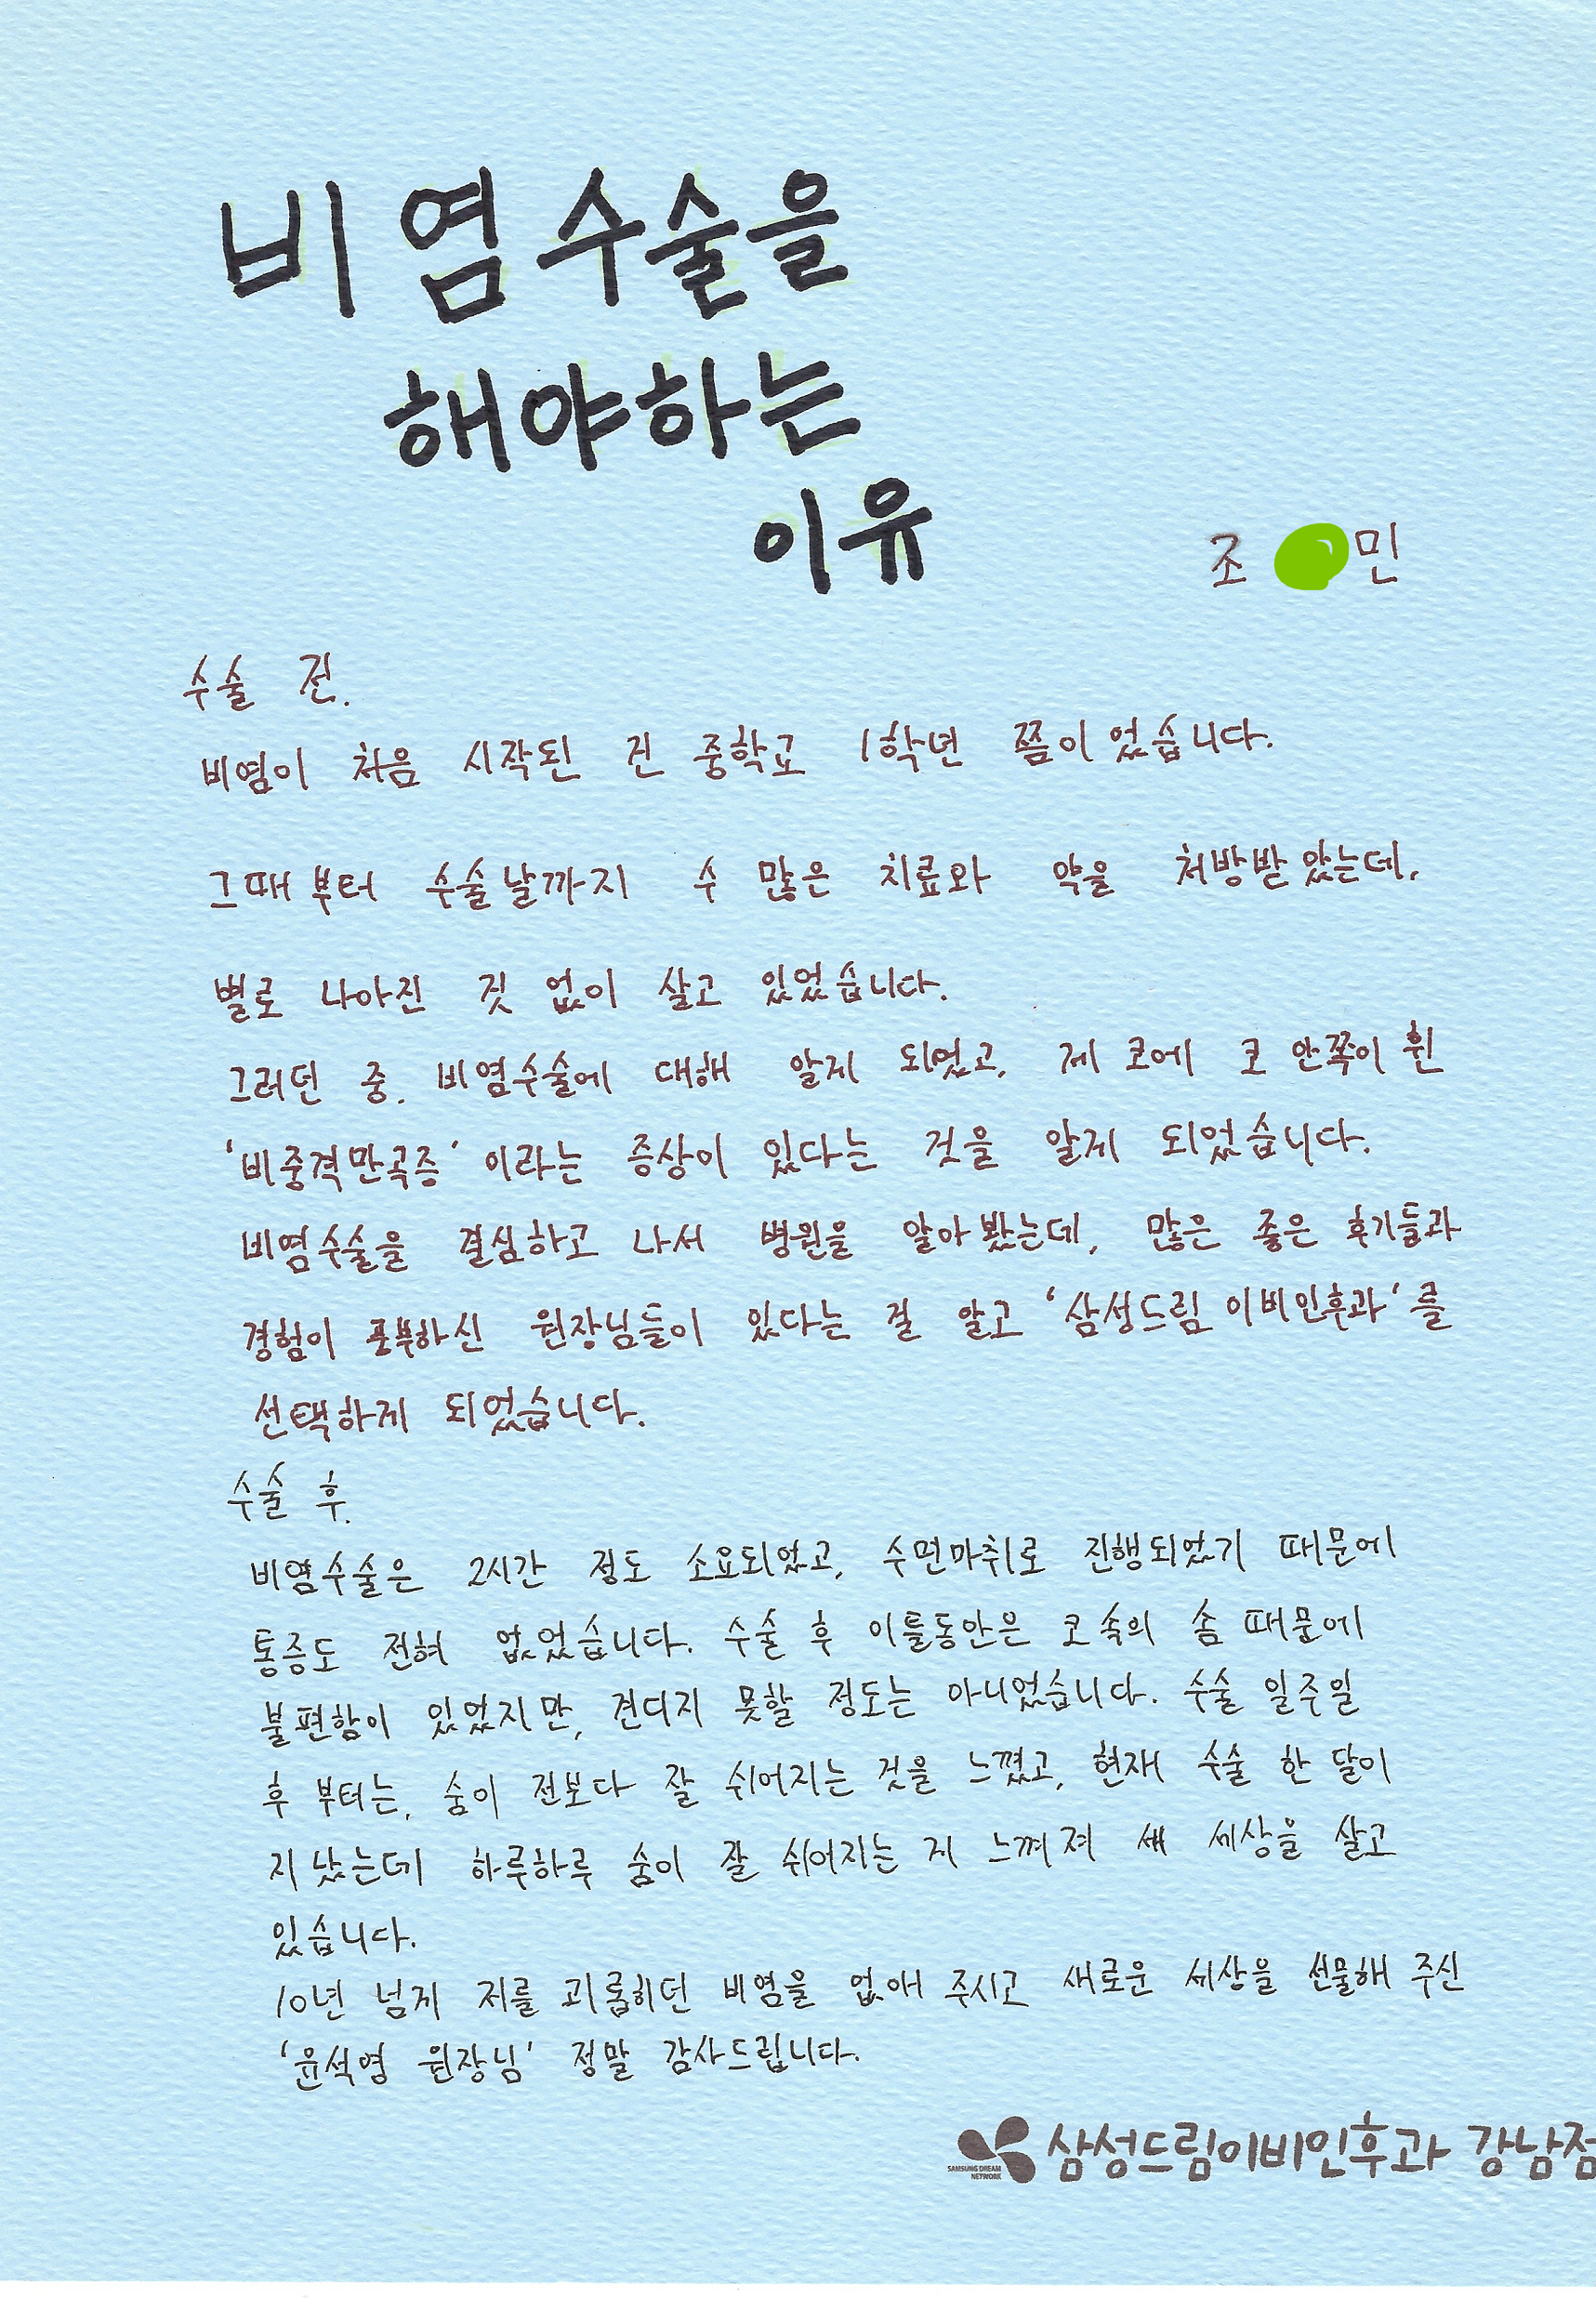 비염수술을
해야하는
이유
조 민
수술 전.
비염이 처음 시작된 건 중학교 1학년 쯤이었습니다.
그때부터 수술날까지 수 많은 치료와 약을 처방받았는데,
별로 나아진 것 없이 살고 있었습니다.
그러던 중. 비염수술에 대해 알게 되었고, 제 코에 코 안쪽이 휜
'비중격만곡증' 이라는 증상이 있다는 것을 알게 되었습니다.
비염수술을 결심하고 나서 병원을 알아봤는데, 많은 좋은 후기들과
경험이 풍부하신 원장님들이 있다는 걸 알고 '삼성드림 이비인후과'를
선택하게 되었습니다.
수술 후.
비염수술은 2시간 정도 소요되었고, 수면마취로 진행되었기 때문에
통증도 전혀 없었습니다. 수술 후 이틀동안은 코 속의 솜 때문에
불편함이 있었지만, 견디지 못할 정도는 아니었습니다. 수술 일주일
후 부터는, 숨이 전보다 잘 쉬어지는 것을 느꼈고, 현재 수술 한 달이
지났는데 하루하루 숨이 잘 쉬어지는 게 느껴져 새 세상을 살고
있습니다.
10년 넘게 저를 괴롭히던 비염을 없애 주시고 새로운 세상을 선물해 주신
'윤석영 원장님' 정말 감사드립니다.
SAMSUNG DREAM NETWORK 삼성드림이비인후과 강남점